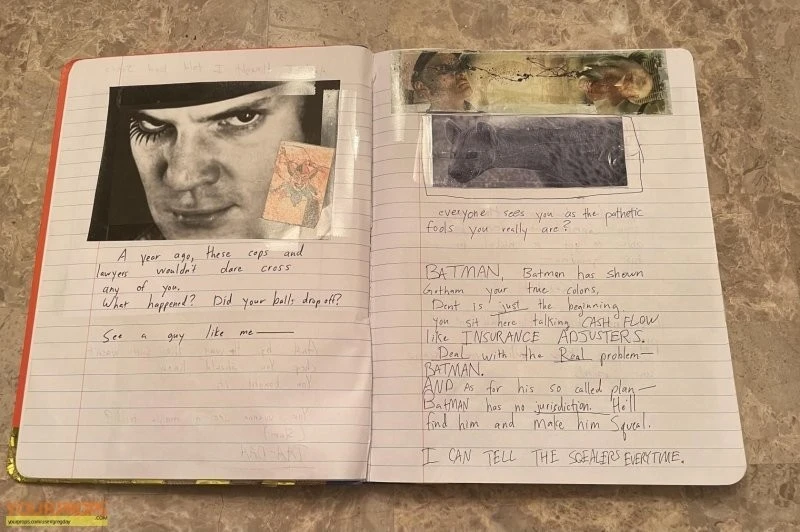 A year ago, these cops and
lawyers wouldn't dare cross
any of you.
What happened? Did your balls drop off?
See a guy like me—
everyone sees you as the pathetic
fools you really are?
BATMAN, Batman has shown
Gotham your true colors.
Dent is just the beginning
you sit here talking CASH FLOW
like INSURANCE ADJUSTERS.
Deal with the Real problem—
BATMAN.
AND AS for his so called plan—
BatMAN has no jurisdiction. He'll
find him and make him Squeal.
I CAN TELL THE SQEALERS EVERYTIME.
.COM